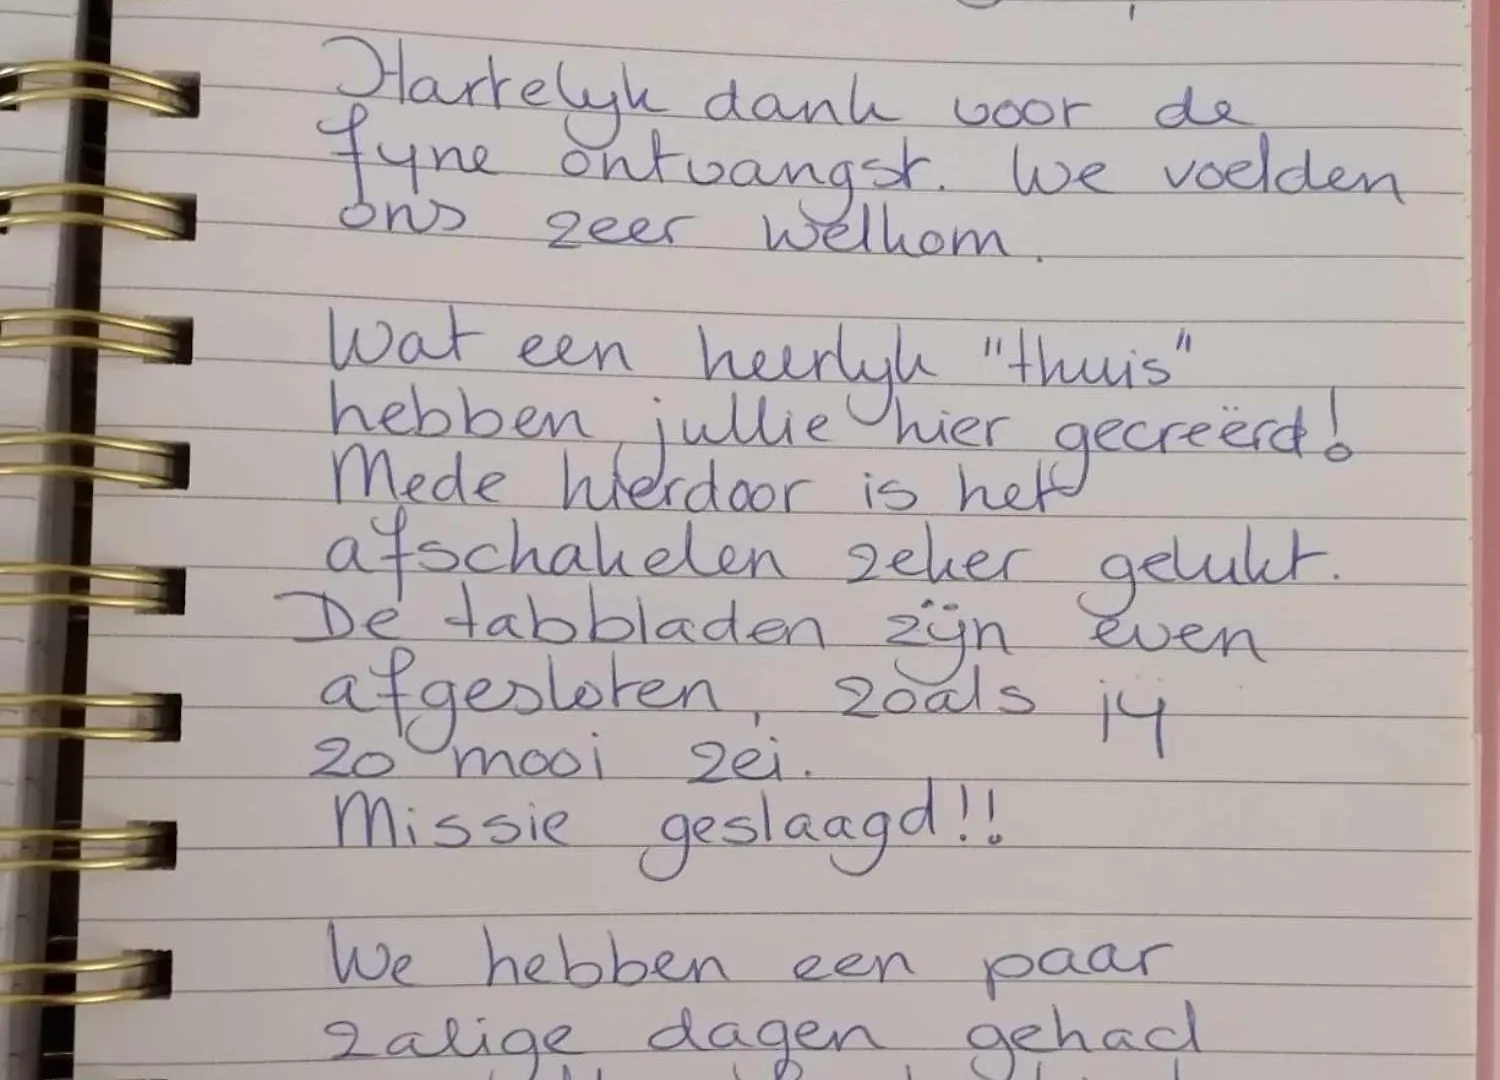 Hartelyk dank voor de
fyne ontvangst. We voelden
ons zeer welkom.
Wat een heerlyk "thuis"
hebben jullie hier gecreëerd!
Mede hierdoor is het
afschakelen zeker gelukt.
De tabbladen zijn even
afgesloten, zoals jij
zo mooi zei.
Missie geslaagd!!
We hebben een paar
zalige dagen gehad